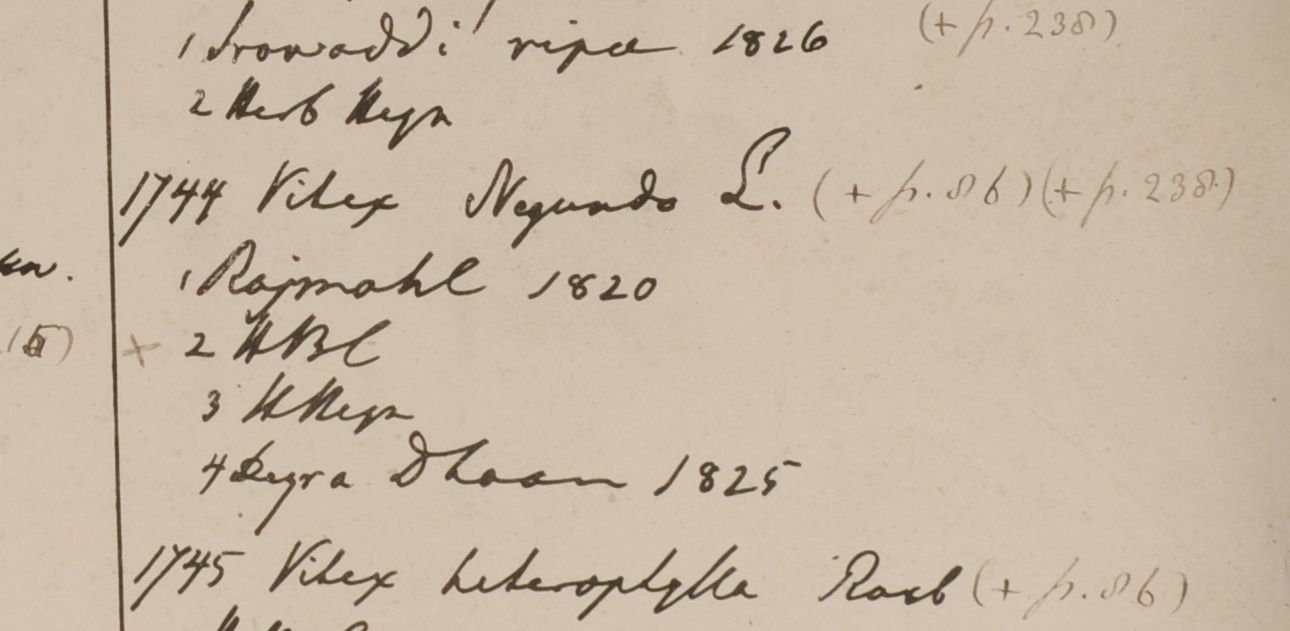 1 Irawaddi ripae 1826 (+ p. 238)
2 Herb Heyn
1744 Vitex Negundo L. (+ p. 86) (+ p. 238)
1 Rajmahl 1820
2 HBC
3 HHeyn
4 Deyra Dhoon 1825
1745 Vitex heterophylla Roxb (+ p. 86)